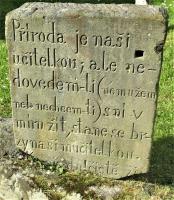 Příroda je naší
učitelkou; ale ne-
dovedem-li (nemůžem
neb nechcem-li) s ní v
míru žít, stane se br-
zy naší mučitelkou.